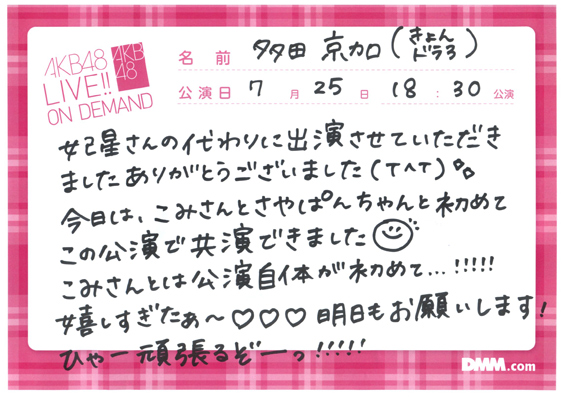 AKB48
LIVE!!
ON DEMAND
AKB
48
名前 多田 京加(きょん
ドラ3)
公演日 7月25日 18:30公演
妃星さんの代わりに出演させていただき
ましたありがとうございました(T^T)
今日は、こみさんとさやぽんちゃんと初めて
この公演で共演できました
こみさんとは公演自体が初めて…!!!!!
嬉しすぎたぁ〜♡♡♡明日もお願いします!
ひゃー頑張るぞーっ!!!!!
DMM.com